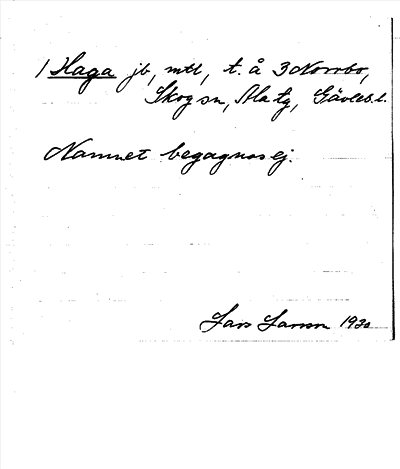 1 Haga jb, mtl, t. å 3 Norrbo,
Skog sn, Ala tg, Gävleb. l.
Namnet begagnas ej.
Lars Larson 1930